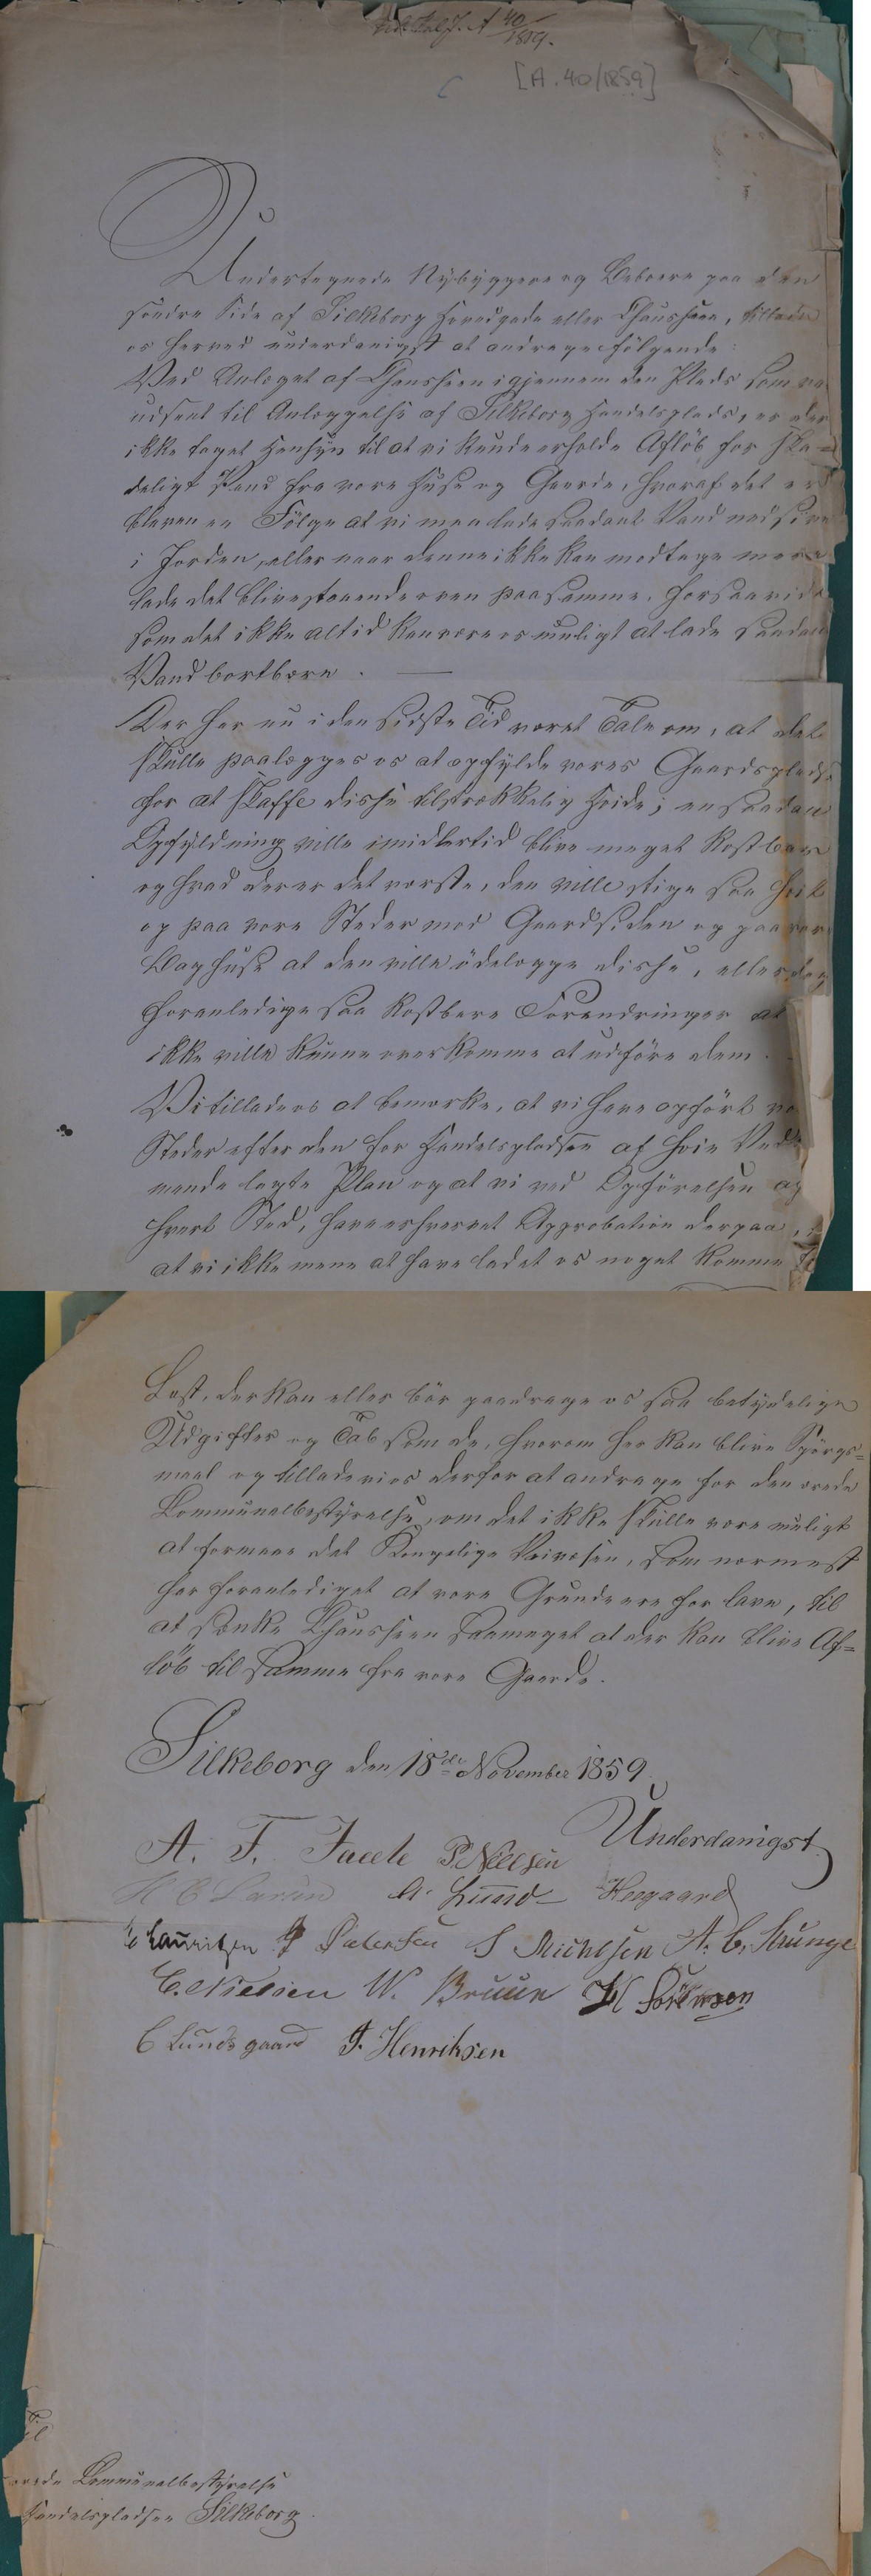 A 40/1859.
[A. 40/1859]
Undertegnede Nybyggere og Beboere paa den
søndre Side af Silkeborg Hovedgade eller Chausseen, tillade
os herved underdanigst at andrage følgende:
Ved Anlæget af Chausseen igjennem den Plads som var
udseet til Anlæggelse af Silkeborg Handelsplads, er der
ikke taget Hensyn til at vi kunde erholde Afløb for ska=
deligt Vand fra vore Huse og Gaarde, hvoraf det er
bleven en Følge at vi maa lade saadant Vand nedsive
i Jorden, eller naar denne ikke kan modtage mere
lade det blive staaende oven paa samme, forsaavidt
som det ikke altid kan være os muligt at lade saadant
Vand bortbære.
Der har nu i den sidste Tid været Tale om, at det
skulle paalægges os at opfylde vores Gaardsplads
for at skaffe disse tilstrækkelig Høide; en saadan
Opfyldning ville imidlertid blive meget kostbar
og hvad der er det værste, den ville stige saa høit
op paa vore Steder mod Gaardsiden og paa vore
Baghuse at den ville ødelægge disse, eller dog
foranledige saa kostbare Forandringer at
ikke ville kunne overkomme at udføre dem.
Vi tillade os at bemærke, at vi have opført vo
Steder efter den for Handelspladsen af Høie Ved
mende lagte Plan og at vi ved Opførelsen af
hvert Sted, have erhvervet Approbation derpaa,
at vi ikke mene at have ladet os noget komme til
Last, der kan eller bør paadrage os saa betydelige
Udgifter og Tab som de, hvorom her kan blive Spørgs=
maal og tillade vi os derfor at andrage for den ærede
Communalbestyrelse, om det ikke skulle være muligt
at formaae det Kongelige Veivæsen, som nærmest
har foranlediget at vore Grunde ere for lave, til
at sænke Chausseen saameget at der kan blive Af=
løb til samme fra vore Gaarde.
Silkeborg den 18de November 1859.
Underdanigst
A. F. P. Nielsen
A. Lund Hegaard
Lauritzen Petersen S Michelsen A. C.
C. Nielsen W. Bruun Sörensen
C Lundsgaard J. Henriksen
Til
ærede Communalbestyrelse
Handelspladsen Silkeborg.